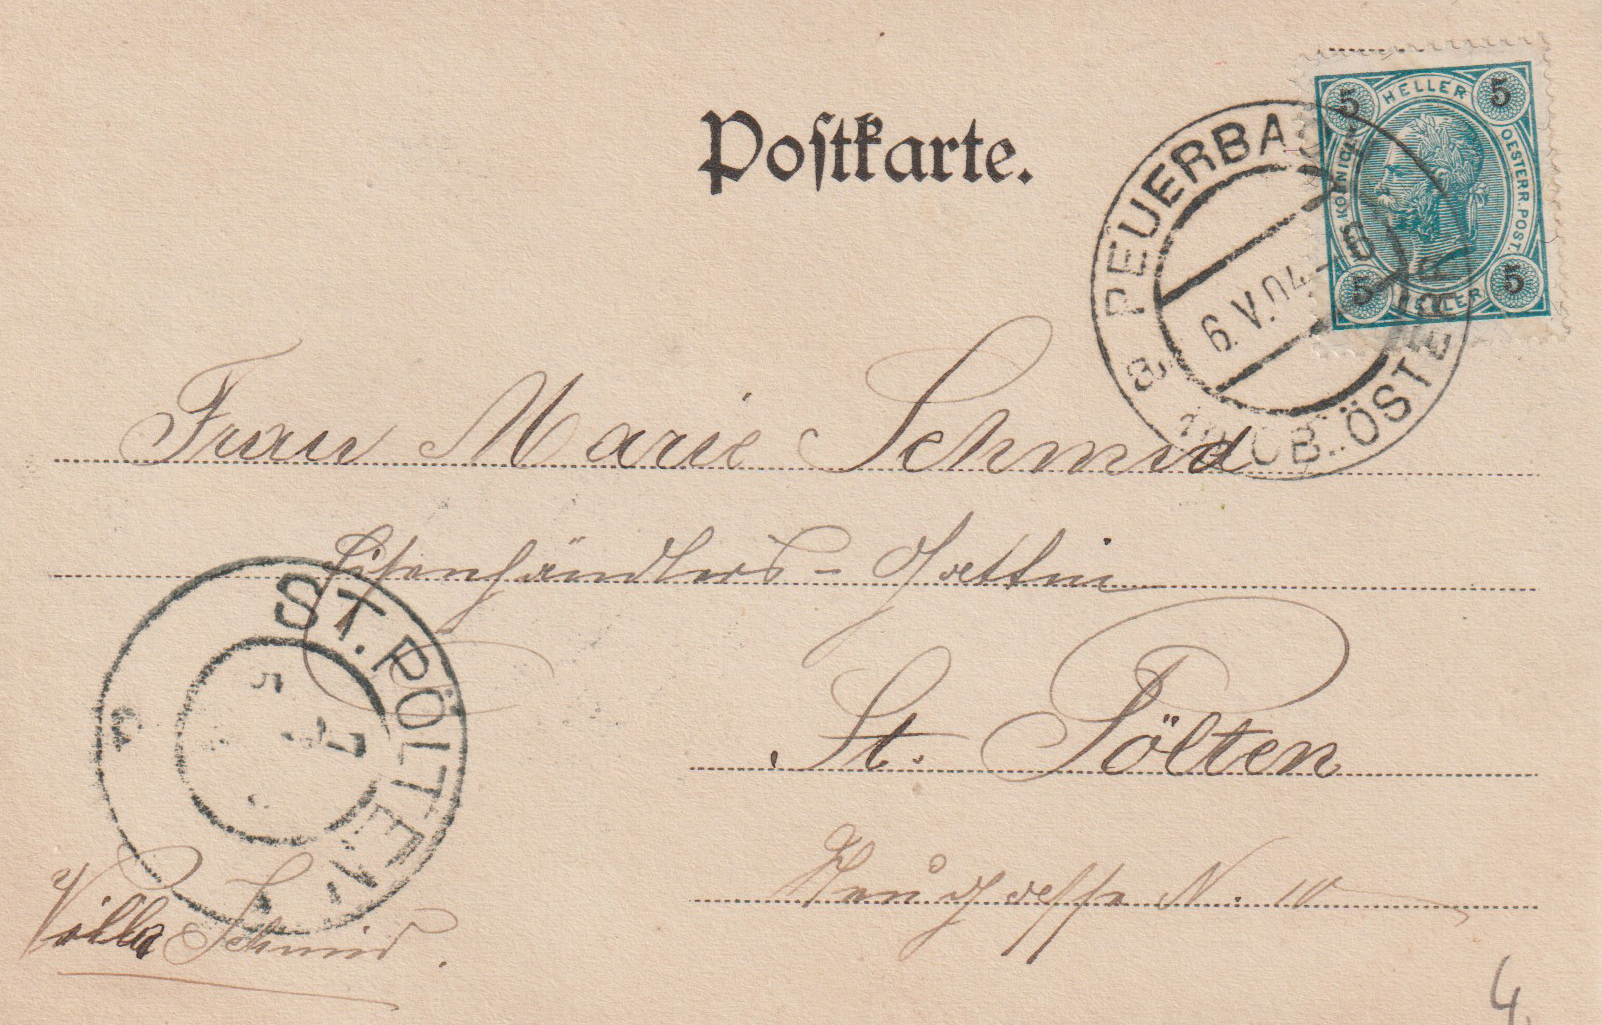 Postkarte.
5 HELLER 5
OESTERR. POST.
5 HELLER 5
PEUERBACH
6.V.04
OB.ÖSTERR
Frau Marie Schmid
Eisenhändlers - Gattin
ST. PÖLTEN
St. Pölten
N. 10
Villa Schmid.
4.